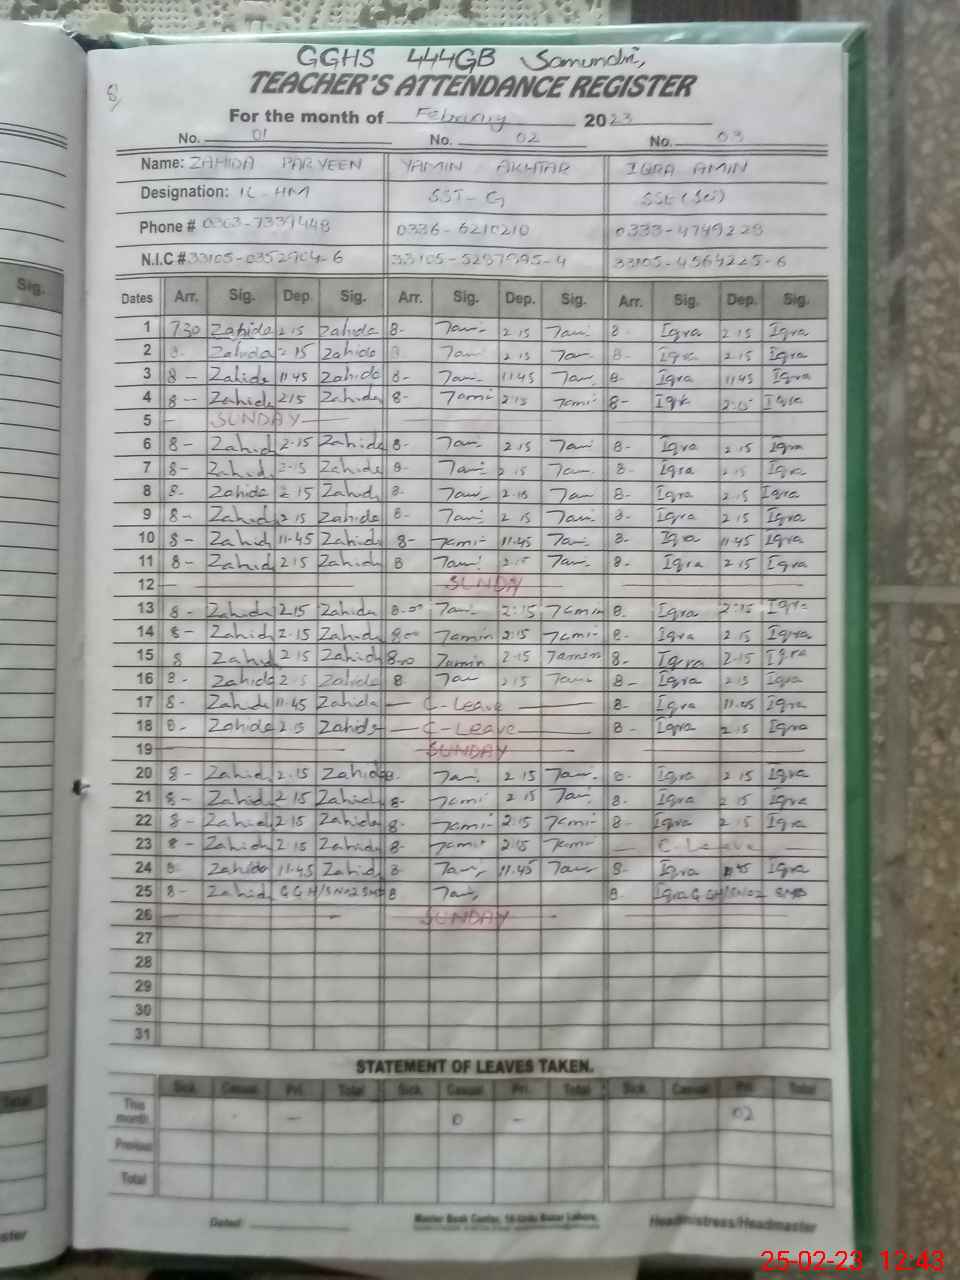 GGHS 444GB Samundri,
TEACHER'S ATTENDANCE REGISTER
8/
For the month of February 2023
No. 01 No. 02 No. 03
Name: ZAHIDA PARVEEN YAMIN AKHTAR IQRA AMIN
Designation: IC-HM SST-G SSE(Sci)
Phone # 0303-7339448 0336-6210210 0333-4749229
N.I.C # 33105-0352904-6 33105-5297995-4 33105-4564225-6
Sig.
Dates Arr. Sig. Dep. Sig. Arr. Sig. Dep. Sig. Arr. Sig. Dep. Sig.
1 730 Zahida 2 15 Zahida 8- 2 15 8- Iqra 2 15 Iqra
2 8- Zahida 2 15 Zahida 8- 2 15 8- Iqra 2 15 Iqra
3 8- Zahida 11 45 Zahida 8- 11 45 8- Iqra 11 45 Iqra
4 8- Zahida 2 15 Zahida 8- 2 15 8- Iqra 2 15 Iqra
5 - SUNDAY
6 8- Zahida 2-15 Zahida 8- 2 15 8- Iqra 2 15 Iqra
7 8- Zahida 2-15 Zahida 8- 2 15 8- Iqra 2 15 Iqra
8 8- Zahida 2 15 Zahida 8- 2-15 8- Iqra 2 15 Iqra
9 8- Zahida 2 15 Zahida 8- 2 15 8- Iqra 2 15 Iqra
10 8- Zahida 11-45 Zahida 8- 11.45 8- Iqra 11 45 Iqra
11 8- Zahida 2 15 Zahida 8 2.15 8- Iqra 2 15 Iqra
12 SUNDAY
13 8- Zahida 2.15 Zahida 8-00 2:15 7amin 8- Iqra 2:15 Iqra
14 8- Zahida 2-15 Zahida 8-00 7amin 2:15 7amin 8- Iqra 2 15 Iqra
15 8 Zahida 2 15 Zahida 8-00 7amin 2-15 7amin 8- Iqra 2-15 Iqra
16 8- Zahida 2-15 Zahida 8 2 15 8- Iqra 2 15 Iqra
17 8- Zahida 11-45 Zahida - C-Leave - 8- Iqra 11-45 Iqra
18 8- Zahida 2 15 Zahida - C-Leave - 8- Iqra 2 15 Iqra
19 SUNDAY
20 8- Zahida 2-15 Zahida 8- 2 15 8- Iqra 2 15 Iqra
21 8- Zahida 2-15 Zahida 8- 2 15 8- Iqra 2 15 Iqra
22 8- Zahida 2 15 Zahida 8- 2:15 8- Iqra 2.15 Iqra
23 8- Zahida 2-15 Zahida 8- 2:15 - C-Leave -
24 8- Zahida 11-45 Zahida 8 11.45 8- Iqra 11 45 Iqra
25 8- Zahida GGH/SNo2 SMD 8 8- Iqra GGH/SNo2 SMD
26 SUNDAY
27
28
29
30
31
STATEMENT OF LEAVES TAKEN.
Sick. Casual. Pri. Total Sick. Casual. Pri. Total Sick. Casual. Pri. Total
This month - 0 - 02
Previous
Total
Total
Dated: Master Book Center, 16-Urdu Bazar Lahore. Headmistress/Headmaster
25-02-23 12:43